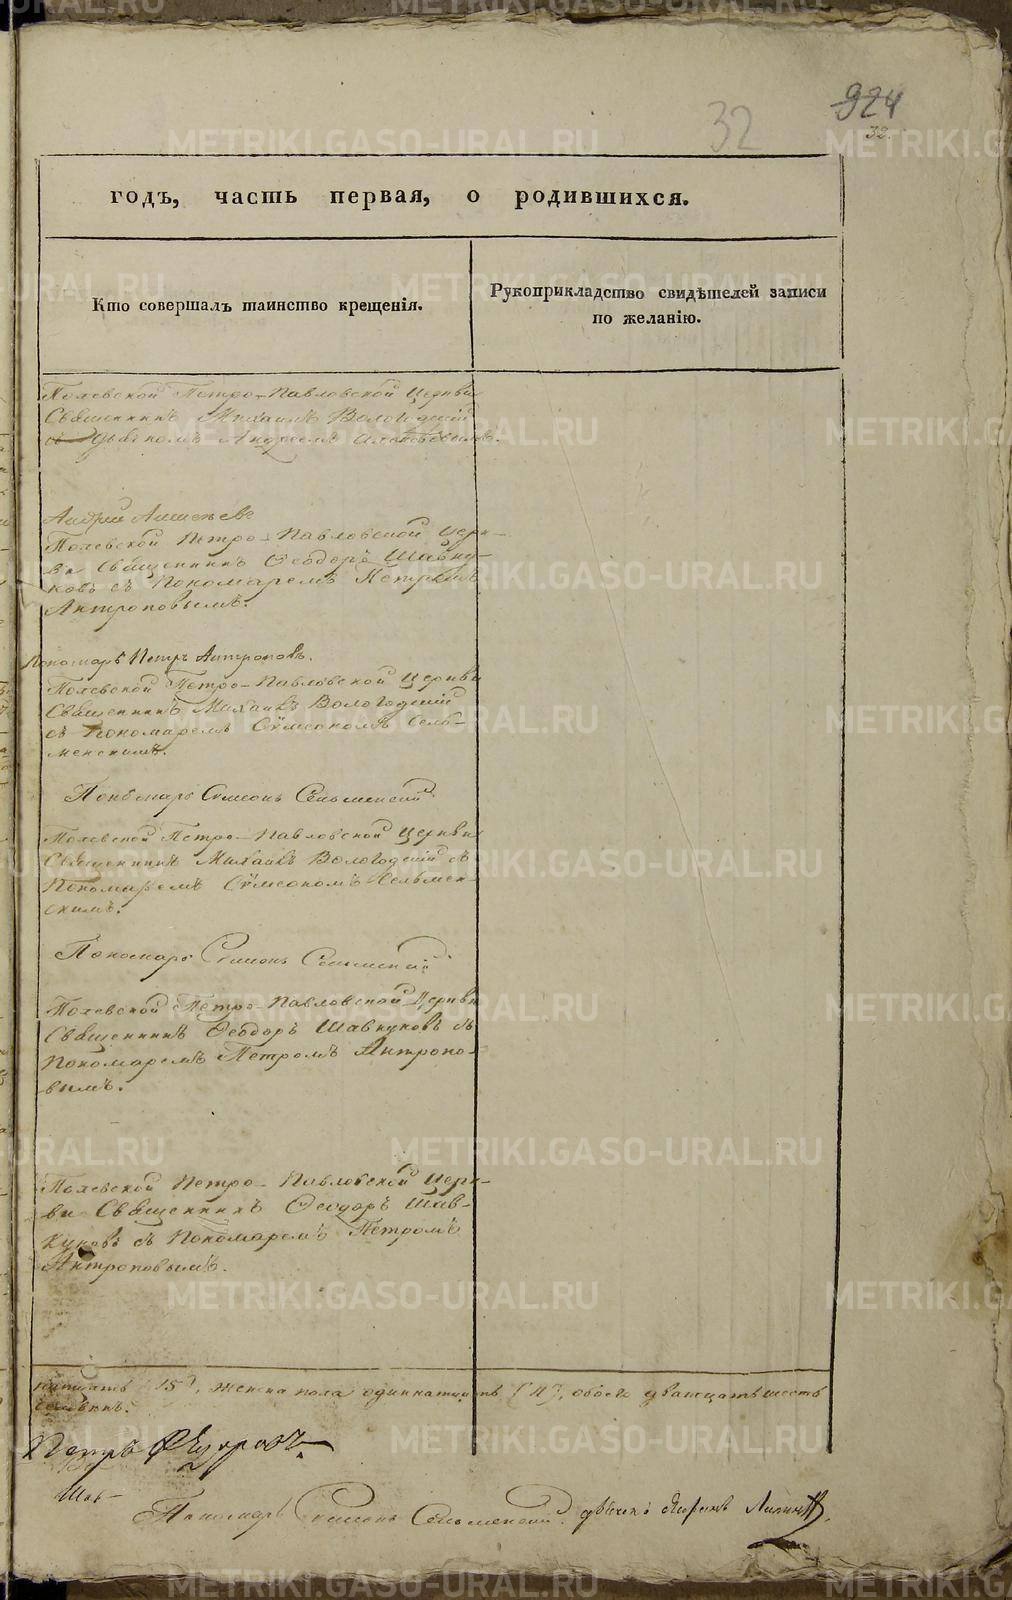 32
924
32.
годъ, часть первая, о родившихся.
Кто совершалъ таинство крещенія.
Рукоприкладство свидѣтелей записи
по желанію.
Полевской Петро-Павловской Церкви
Священникъ Михаилъ Вологодскій
съ Дьякомъ Андреемъ
Андрей
Полевской Петро-Павловской Церк-
ви Священникъ Ѳеодоръ Шавку-
ковъ съ Пономаремъ Петромъ
Антроповымъ.
Пономарь Петръ Антроповъ.
Полевской Петро-Павловской Церкви
Священникъ Михаилъ Вологодскій
съ Пономаремъ Сѵмеономъ Сельм-
менскимъ.
Пономарь Симеонъ Сельменскій
Полевской Петро-Павловской Церкви
Священникъ Михаилъ Вологодскій съ
Пономаремъ Сѵмеономъ Сельмен-
скимъ.
Пономарь Симеонъ Сельменскій
Полевской Петро-Павловской Церкви
Священникъ Ѳеодоръ Шавкуковъ съ
Пономаремъ Петромъ Антропо-
вымъ.
Полевской Петро-Павловской Церк-
ви Священникъ Ѳеодоръ Шав-
куковъ съ Пономаремъ Петромъ
Антроповымъ.
15, женска пола одиннатцать (11), обоего дватцать шесть
человѣкъ.
Петръ
Шав-
Пономарь Симеонъ Сельменскій.
METRIKI.GASO-URAL.RU